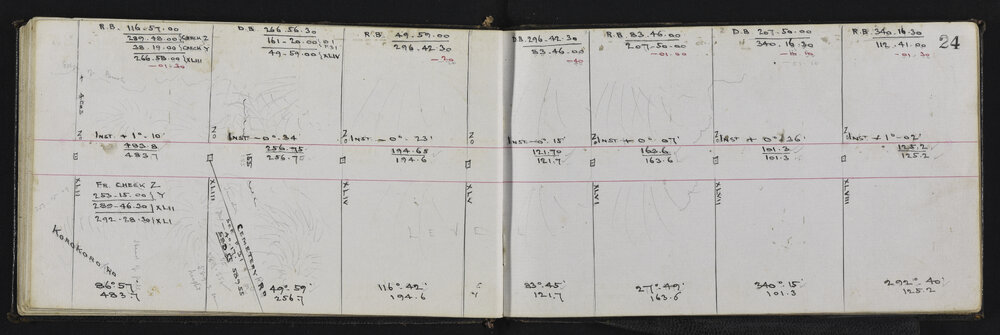 24
R.B. 116-57.00
289-48.00 } CHECK Z
38.19.00 } CHECK Y
266.58.00 } XLIII
-01.30
D.B. 266.56.30
161-20.00
49-59.00 } XLIV
R.B. 49.59.00
296.42.30
-30
D.B. 296.42.30
83.46.00
-40
R.B. 83.46.00
207-50.00
-01.00
D.B 207.50.00
340.16.30
R.B. 340.16.30
112.41.00
-01.30
INST. + 1°-10'
INST - 0°.34
INST. - 0°. 23'
INST - 0°. 15'
INST + 0°.07'
INST + 0° 36'
INST + 1°-02'
483.8
483.7
256.75
256.70
194.65
194.6
121.70
121.7
163.6
163.6
101.3
101.3
125.2
125.2
XLII
XLIII
XLIV
XLV
XLVI
XLVII
XLVIII
FR. CHECK Z
253-15.00 } Y
289-46.30 } XLII
292.28.30 } XLI
KOROKORO RD
CEMETERY RD
LEVEL
86° 57'
483.7
49°.59'
256.7
116°.42'
194.6
83°.45'
121.7
27°.49'
163.6
340°.15'
101.3
292°.40'
125.2